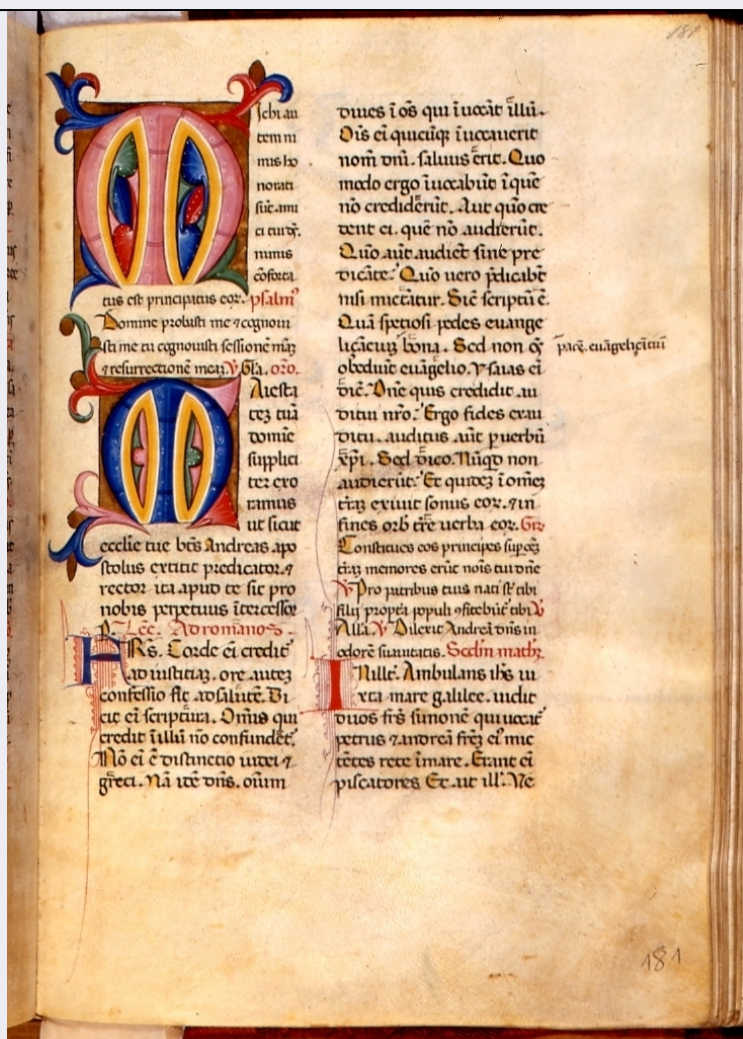 181
Michi au
tem ni
mis ho
norati
sūt. ami
ci tui dꝰ.
nimis
cōforta
tus est principatus eoꝝ. psalmꝰ
Domine probasti me ⁊ cognoui
sti me tu cognouisti sessionē meaꝫ
⁊ resurrectionē meaꝫ ℣ Gl̄a. or̄o.
Maiesta
teꝫ tuā
domīe
supplici
ter exo
ramus
ut sicut
ecclīe tue bt̄s Andreas apo
stolus extitit predicator. ⁊
rector ita apud te sit pro
nobis perpetuus ītercessor
P. Lēc. Ad romanos.
FRS. Corde ei credit̄
ad iustitiaꝫ. ore auteꝫ
confessio fit ad salutē. Di
cit ei scriptura. Omīs qui
credit ī illū nō confundet̄.
Nō ei ē distinctio iudei ⁊
greci. Nā idē dn̄s. oīum
diues ī oēs qui īuocāt illū.
Oīs ei quicūqꝫ īuocauerit
nom̄ dn̄i. saluus erit. Quo
modo ergo īuocabūt ī quē
nō crediderūt. Aut quō cre
dent ei. quē nō audierūt.
Quō aūt audiēt sine pre
dicāte. Quō uero p̄dicabūt
nisi mictātur. Sic̄ scriptū ē.
Quā spetiosi pedes euange
liçātiuꝫ bona. Sed non oēs
pacē. euāgeliçātiū
obediūt euāgelio. ysaias ei
dic̄. Dn̄e quis credidit au
ditui nr̄o. Ergo fides ex au
ditu. auditus aūt p uerbū
xp̄i. Sed dico. Nūqd non
audierūt. Et quideꝫ ī om̄eꝫ
t̄raꝫ exiuit sonus eoꝝ. ⁊ in
fines orb̄ t̄re uerba eoꝝ. Gr̄.
Constitues eos principes sup om̄eꝫ
t̄raꝫ memores erūt nōis tui dn̄e
℣ Pro patribus tuis nati sūt tibi
filij proptea populi ꝯfitebūt̄ tibi ℣
Alla. ℣ Dilexit Andreā dn̄s in
odorē suauitatis. Scd̄m math̄.
In illo t̄. Ambulans ih̄s iu
xta mare galilee. uidit
duos fr̄s simonē qui uocat̄
petrus ⁊ andreā fr̄eꝫ eiꝰ mic
tētes rete ī mare. Erant ei
piscatores Et ait ill̄. Ve
181